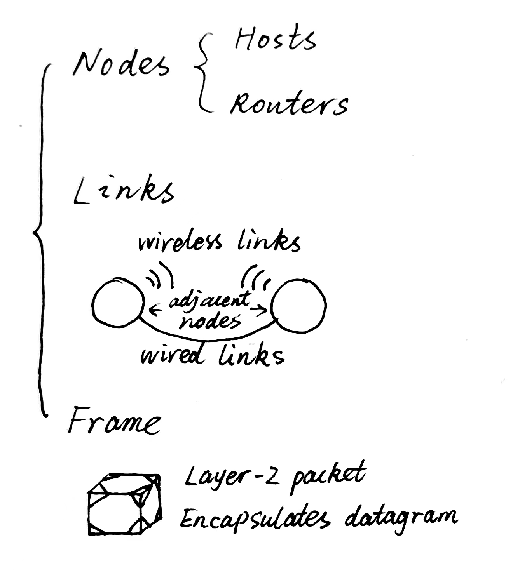 Nodes
Hosts
Routers
Links
wireless links
adjacent
nodes
wired links
Frame
Layer-2 packet
Encapsulates datagram